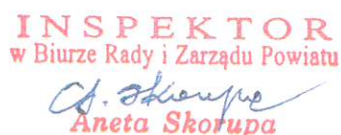 INSPEKTOR
w Biurze Rady i Zarządu Powiatu
A. Skorupa
Aneta Skorupa